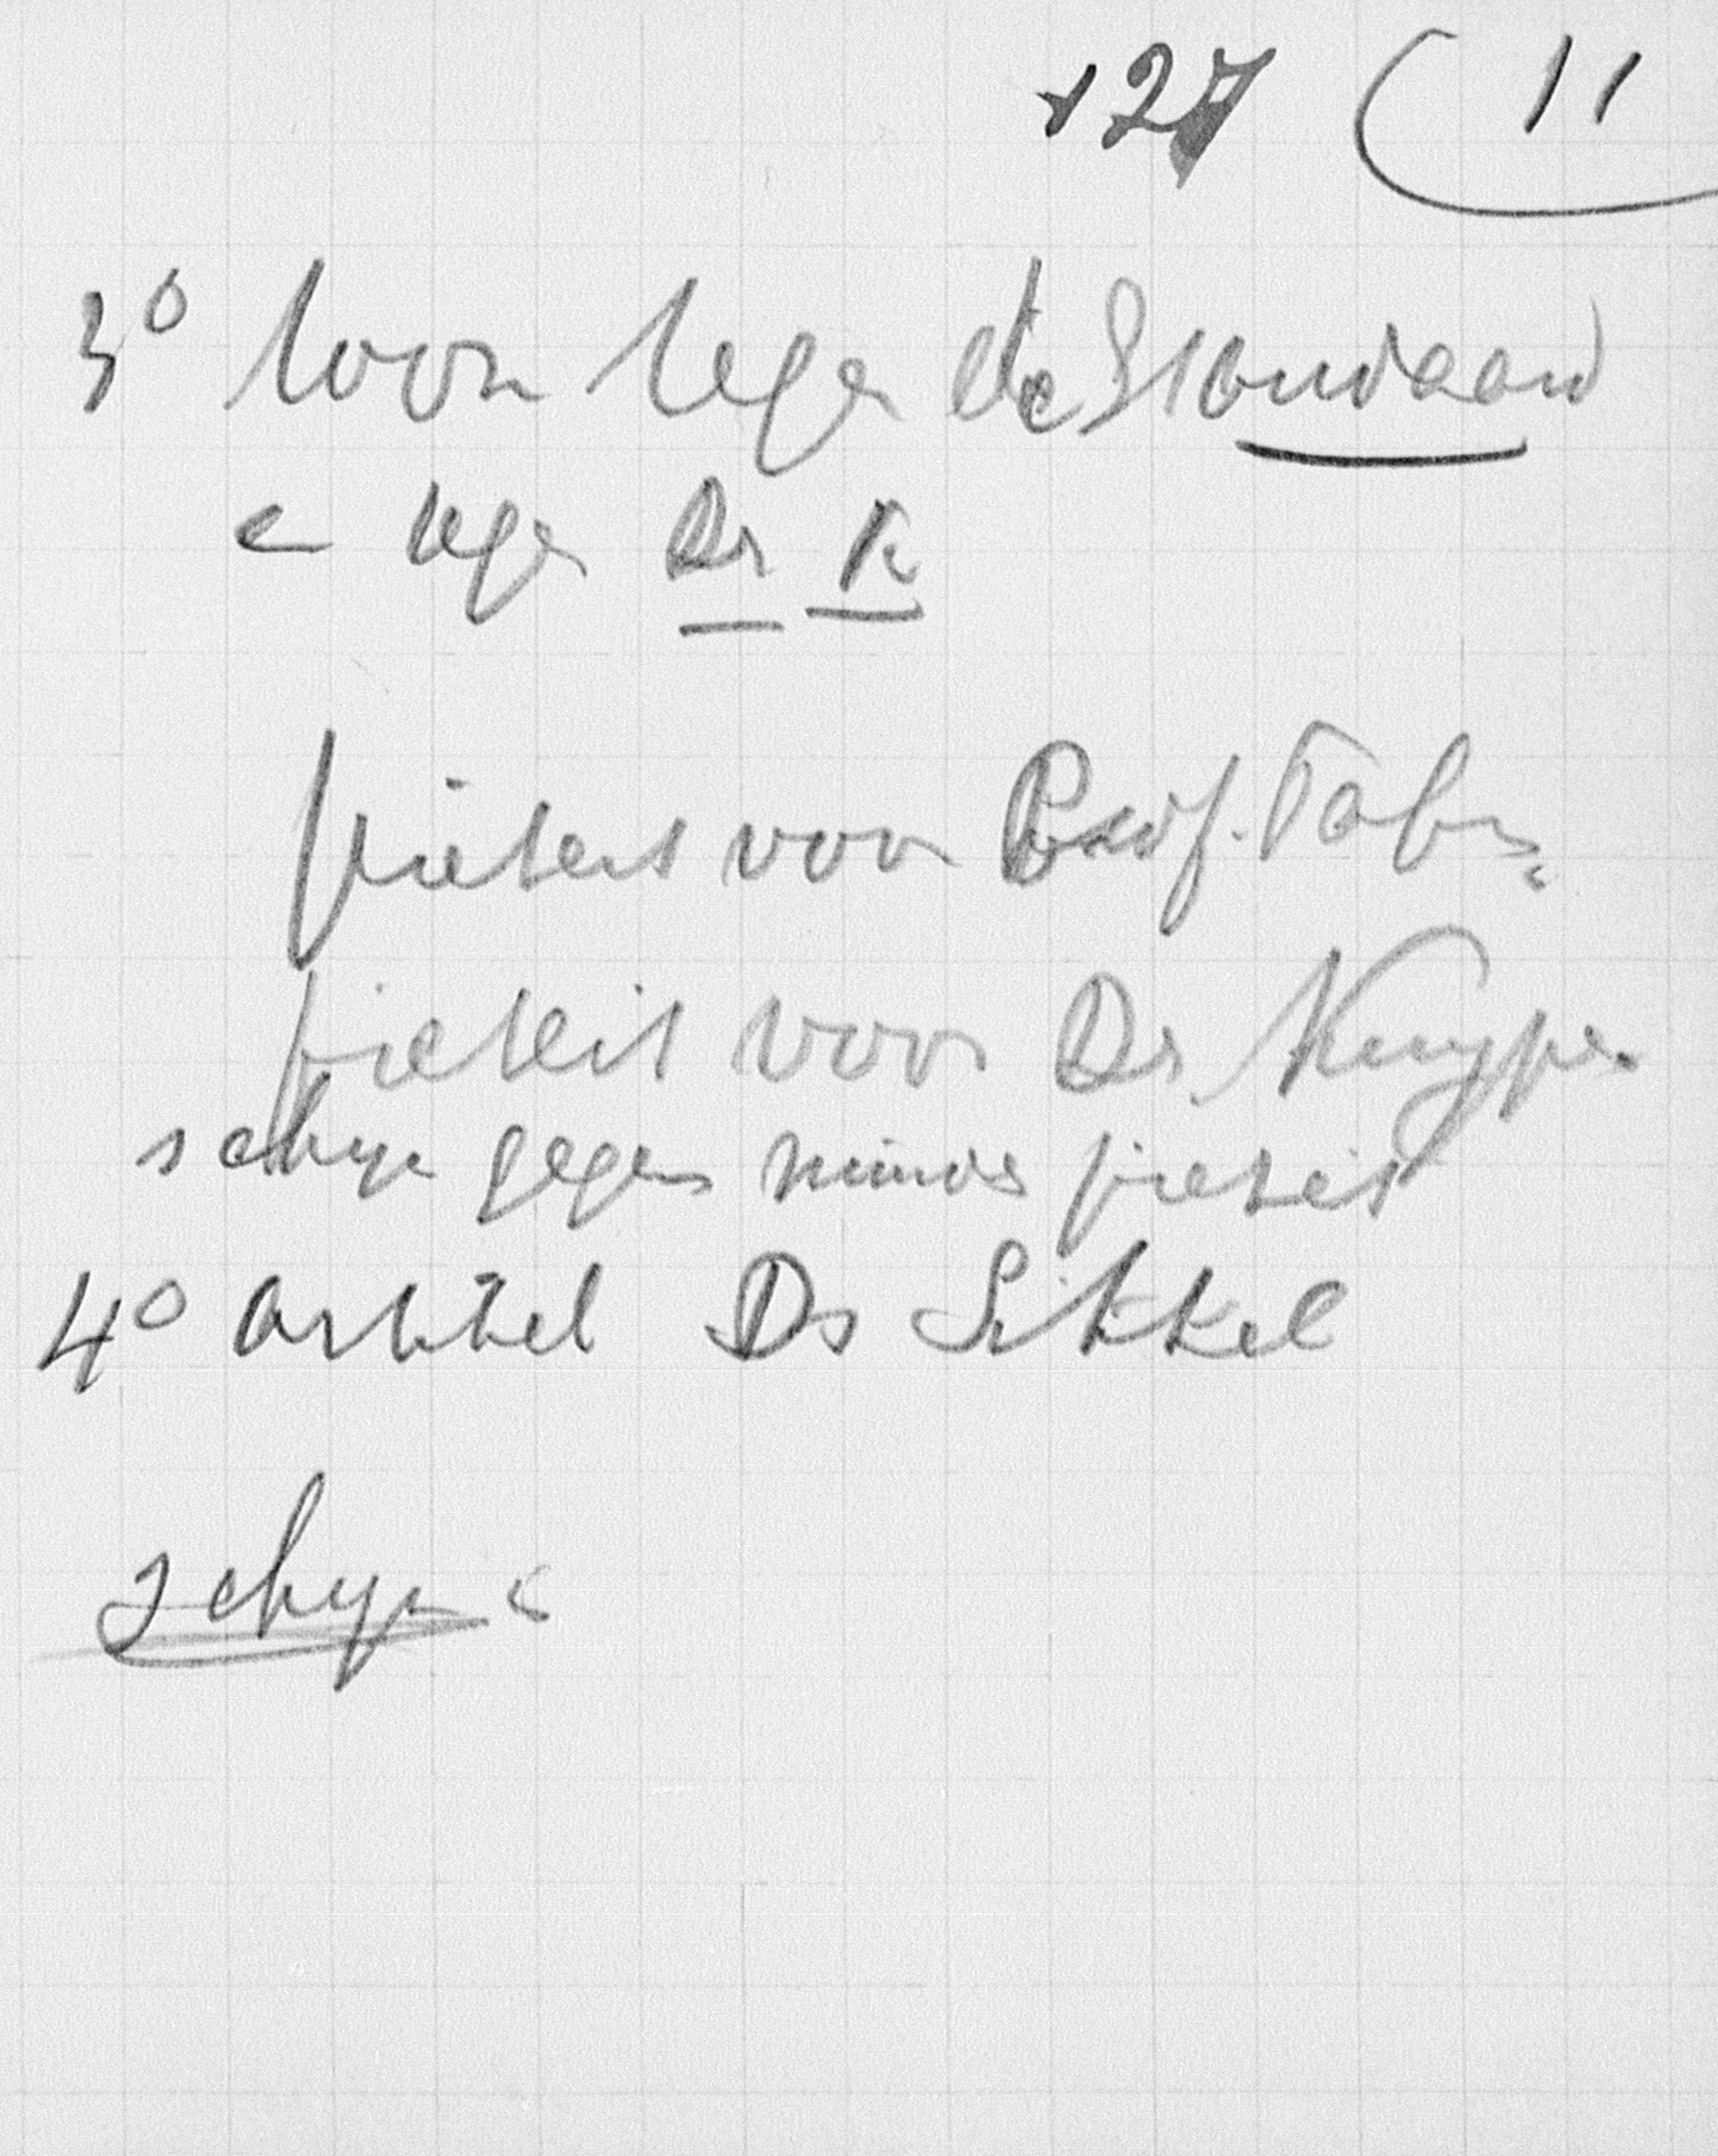 127 11
3º toon tegen de Standaard
en tegen Dr K
piëteit voor Prof. Fabius
piëteit voor Dr. Kuyper
schijn gegen piëteit
4º artikel Ds Sikkel
schijn